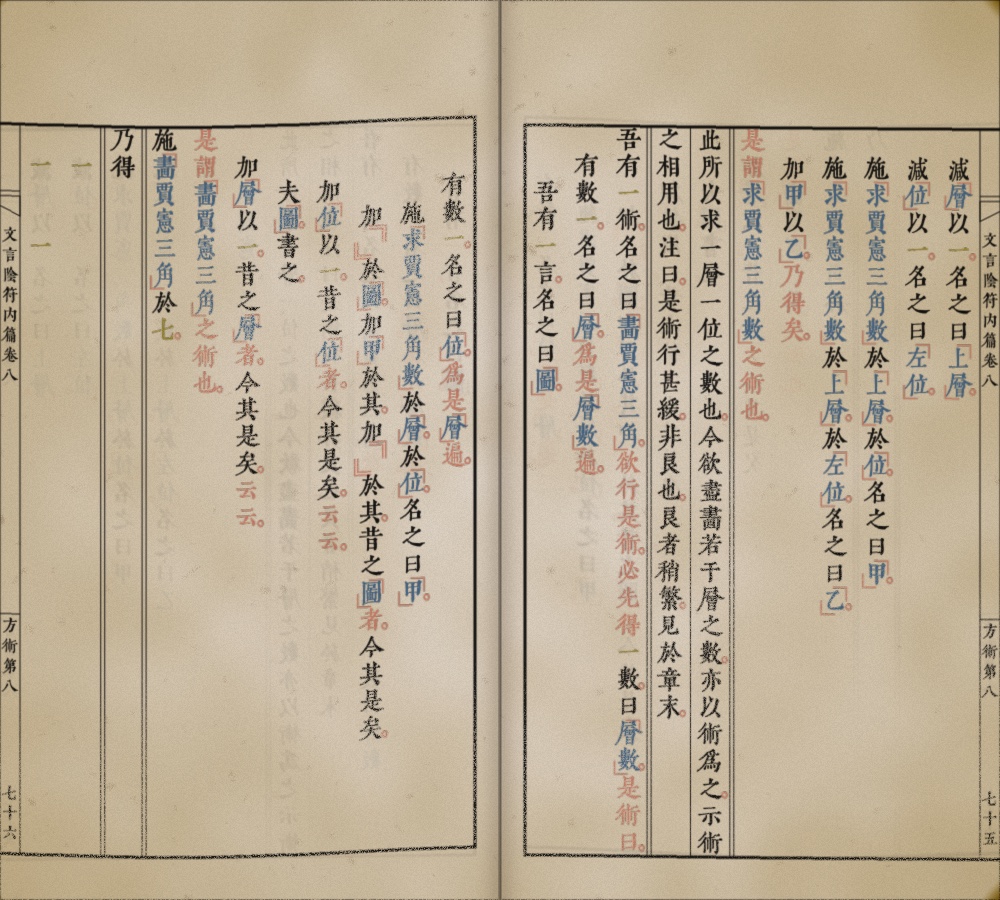 文言陰符內篇卷八 方術第八 七十五
減「層」以一。名之曰「上層」。
減「位」以一。名之曰「左位」。
施「求賈憲三角數」於「上層」。於「位」。名之曰「甲」。
施「求賈憲三角數」於「上層」。於「左位」。名之曰「乙」。
加「甲」以「乙」。乃得矣。
是謂「求賈憲三角數」之術也。
此所以求一層一位之數也。今欲盡畵若干層之數。亦以術爲之。示術
之相用也。注曰。是術行甚緩。非良也。良者稍繁。見於章末。
吾有一術。名之曰「畵賈憲三角」。欲行是術。必先得一數。曰「層數」。是術曰。
有數一。名之曰「層」。爲是「層數」遍。
吾有一言。名之曰「圖」。
有數一。名之曰「位」。爲是「層」遍。
施「求賈憲三角數」於「層」。於「位」。名之曰「甲」。
加『』於「圖」。加「甲」於其。加『 』於其。昔之「圖」者。今其是矣。
加「位」以一。昔之「位」者。今其是矣。云云。
夫「圖」。書之。
加「層」以一。昔之「層」者。今其是矣。云云。
是謂「畵賈憲三角」之術也。
施「畵賈憲三角」於七。
乃得
一
一 一
文言陰符內篇卷八 方術第八 七十六